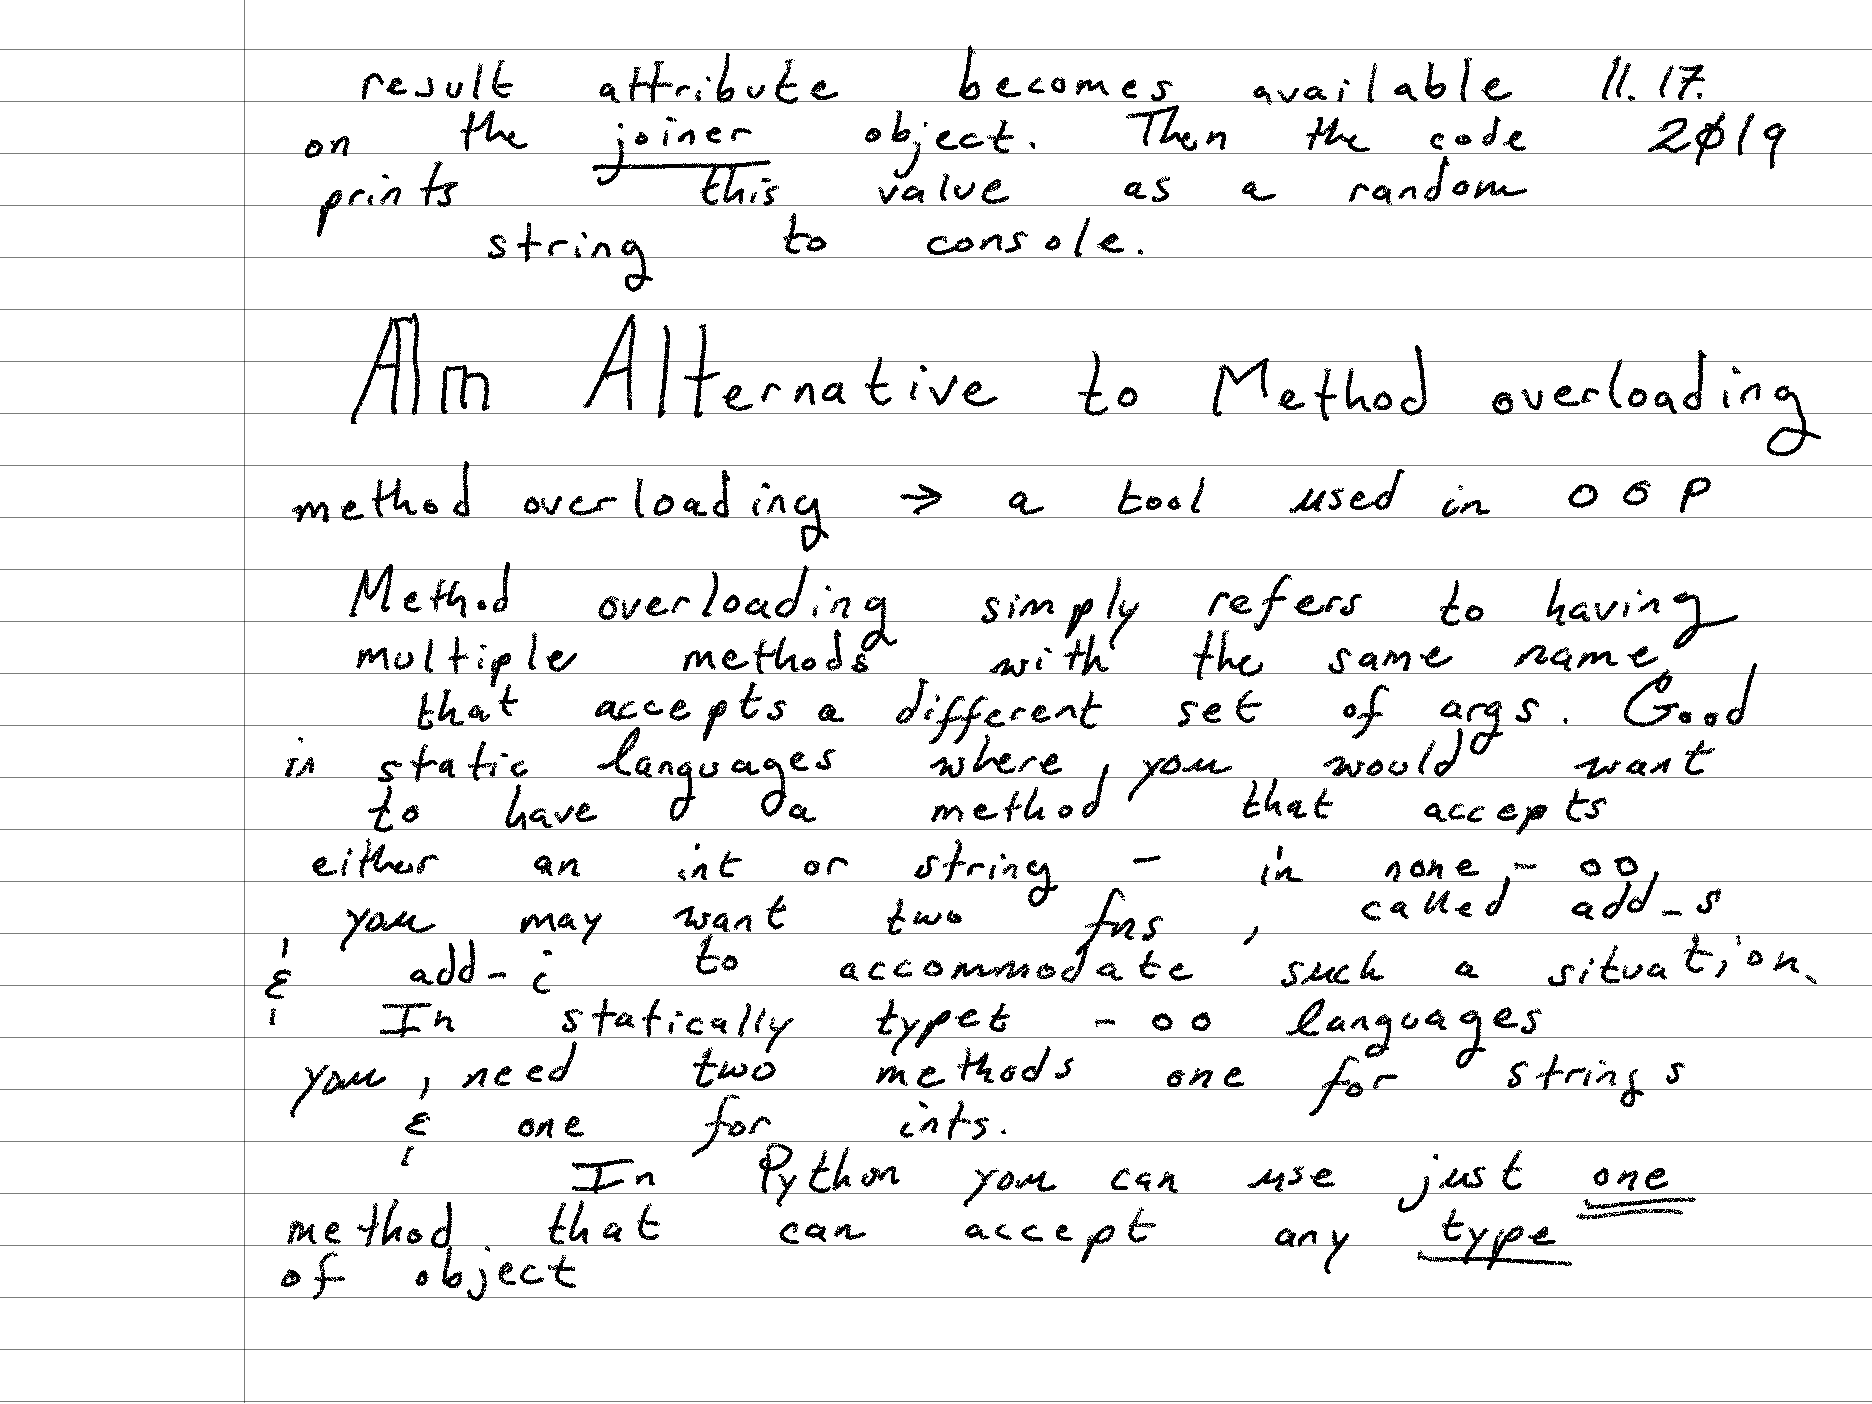 result attribute becomes available 11.17.
on the joiner object. Then the code 2019
prints this value as a random
string to console.
Alm Alternative to Method overloading
method overloading → a tool used in OOP
Method overloading simply refers to having
multiple methods with the same name
that accepts a different set of args. Good
in static languages where you would want
to have a method that accepts
either an int or string - in none - oo,
you may want two fns, called add_s
& add_i to accommodate such a situation.
In statically typet - oo languages
you, need two methods one for strings
& one for ints.
In Python you can use just one
method that can accept any type
of object